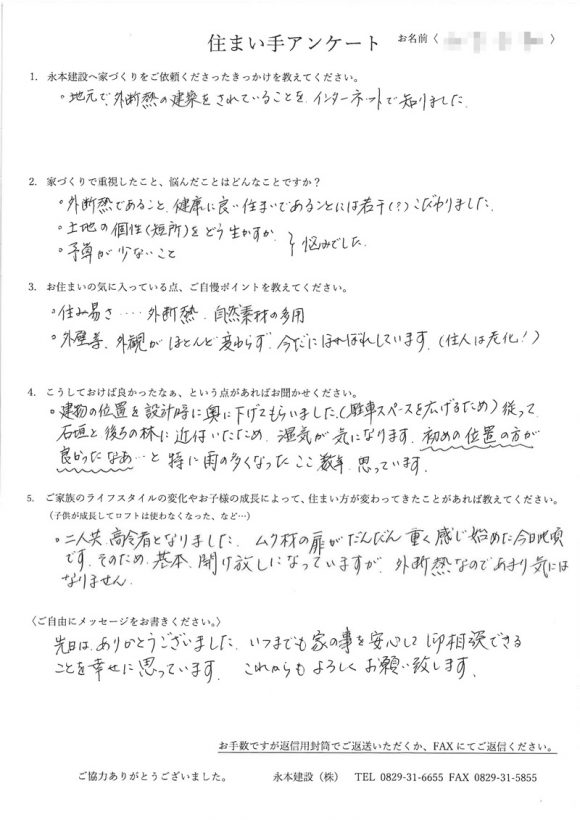 住まい手アンケート
お名前〈
〉
1. 永本建設へ家づくりをご依頼くださったきっかけを教えてください。
・地元で、外断熱の建築をされていることを、インターネットで知りました。
2. 家づくりで重視したこと、悩んだことはどんなことですか?
・外断熱であること、健康に良い住まいであることには若干(?)こだわりました。
・土地の個性(短所)をどう生かすか
・予算が少ないこと
悩みでした。
3. お住まいの気に入っている点、ご自慢ポイントを教えてください。
・住み易さ‥‥外断熱、自然素材の多用
・外壁等、外観がほとんど変わらず、今だにほれぼれしています。(住人は老化!)
4. こうしておけば良かったなぁ、という点があればお聞かせください。
・建物の位置を設計時に奥に下げてもらいました。(駐車スペースを広げるため)従って
石垣と後ろの林に近付いたため、湿気が気になります。初めの位置の方が
良かったなあ…と特に雨の多くなったここ数年、思っています。
5. ご家族のライフスタイルの変化やお子様の成長によって、住まい方が変わってきたことがあれば教えてください。
(子供が成長してロフトは使わなくなった、など…)
・二人共、高令者となりました。ムク材の扉がだんだん重く感じ始めた今日此頃
です。そのため、基本、開け放しになっていますが、外断熱なのであまり気には
なりません。
〈ご自由にメッセージをお書きください。〉
先日は、ありがとうございました。いつまでも家の事を安心して御相談できる
ことを幸せに思っています。これからもよろしくお願い致します。
お手数ですが返信用封筒でご返送いただくか、FAXにてご返信ください。
ご協力ありがとうございました。 永本建設(株) TEL 0829-31-6655 FAX 0829-31-5855